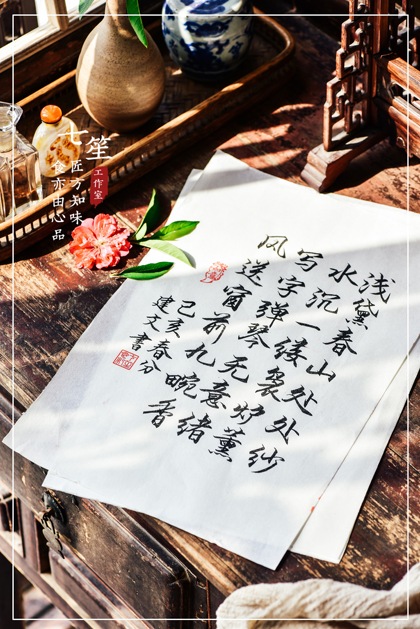 浅黛春山处处纱
水沉一缕袅炉薰
写字弹琴无意绪
风送窗前九畹香
己亥春分
建文书
七笙
工作室
匠方知味
食亦由心品